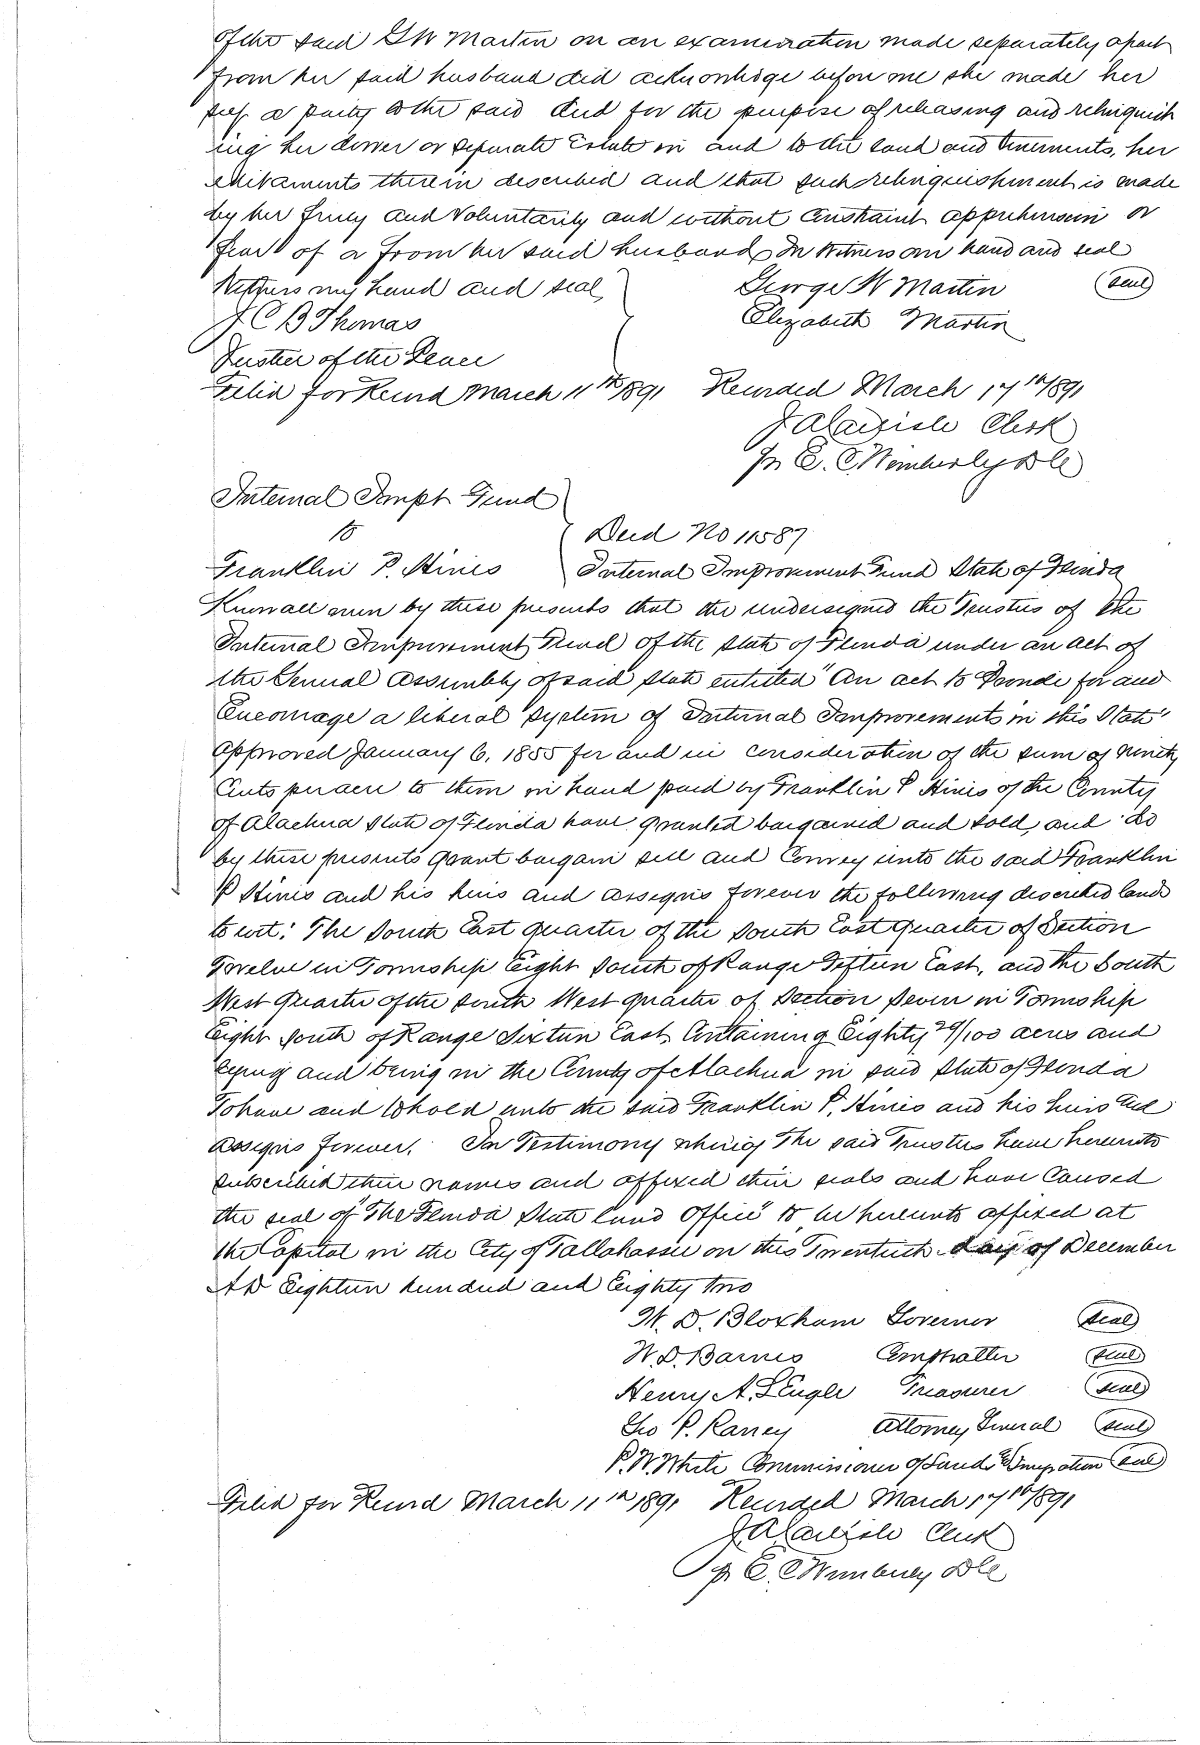 of the said G W Martin on an examination made separately apart
from her said husband did acknowlidge before me she made her
self a party to the said deed for the purpose of releasing and relinquish
ing her dower or seperate Estate in and to the land and tenements, her
editaments therein described and that such relinquishment is made
by her freely and Voluntarily and without constraint apprehension or
fear of or from her said husband In Witness our hand and seal
Witness my hand and seal
George W Martin (seal)
J C B Thomas
Elizabeth Martin
Justice of the Peace
Filed for Record March 11th 1891 Recorded March 17th 1891
J A Carlisle Clerk
pr E. C. Wimberly D C
Internal Impt Fund
to
Deed No 11587
Franklin P. Hines
Internal Improvement Fund State of Florida
Know all men by these presents that the undersigned the Trustees of the
Internal Improvement Fund of the State of Florida under an act of
the General Assembly of said State entitled "An act to Provide for and
Encourage a liberal System of Internal Improvements in this State"
approved January 6, 1855 for and in consideration of the sum of Ninety
Cents per acre to them in hand paid by Franklin P Hines of the County
of Alachua State of Florida have granted bargained and sold, and do
by these presents grant bargain sell and Convey unto the said Franklin
P Hines and his heirs and assigns forever the following described lands
to wit: The South East quarter of the South East quarter of Section
Twelve in Township Eight South of Range Fifteen East, and the South
West Quarter of the South West quarter of Section Seven in Township
Eight South of Range Sixteen East Containing Eighty 29/100 acres and
lying and being in the County of Alachua in said State of Florida
To have and to hold unto the said Franklin P. Hines and his heirs and
assigns forever. In Testimony whereof The said Trustees have hereunto
subscribed their names and affixed their seals and have Caused
the seal of "The Florida State Land Office" to be hereunto affixed at
the Capital in the City of Tallahassee on this Twentieth day of December
A D Eighteen hundred and Eighty two
W. D. Bloxham Governor (seal)
W. D. Barnes Comptroller (seal)
Henry A. L'Engle Treasurer (seal)
Geo P. Raney Attorney General (seal)
P. W. White Commissioner of Lands & Immigration (seal)
Filed for Record March 11th 1891 Recorded March 17th 1891
J A Carlisle Clerk
pr E. C. Wimberly D C